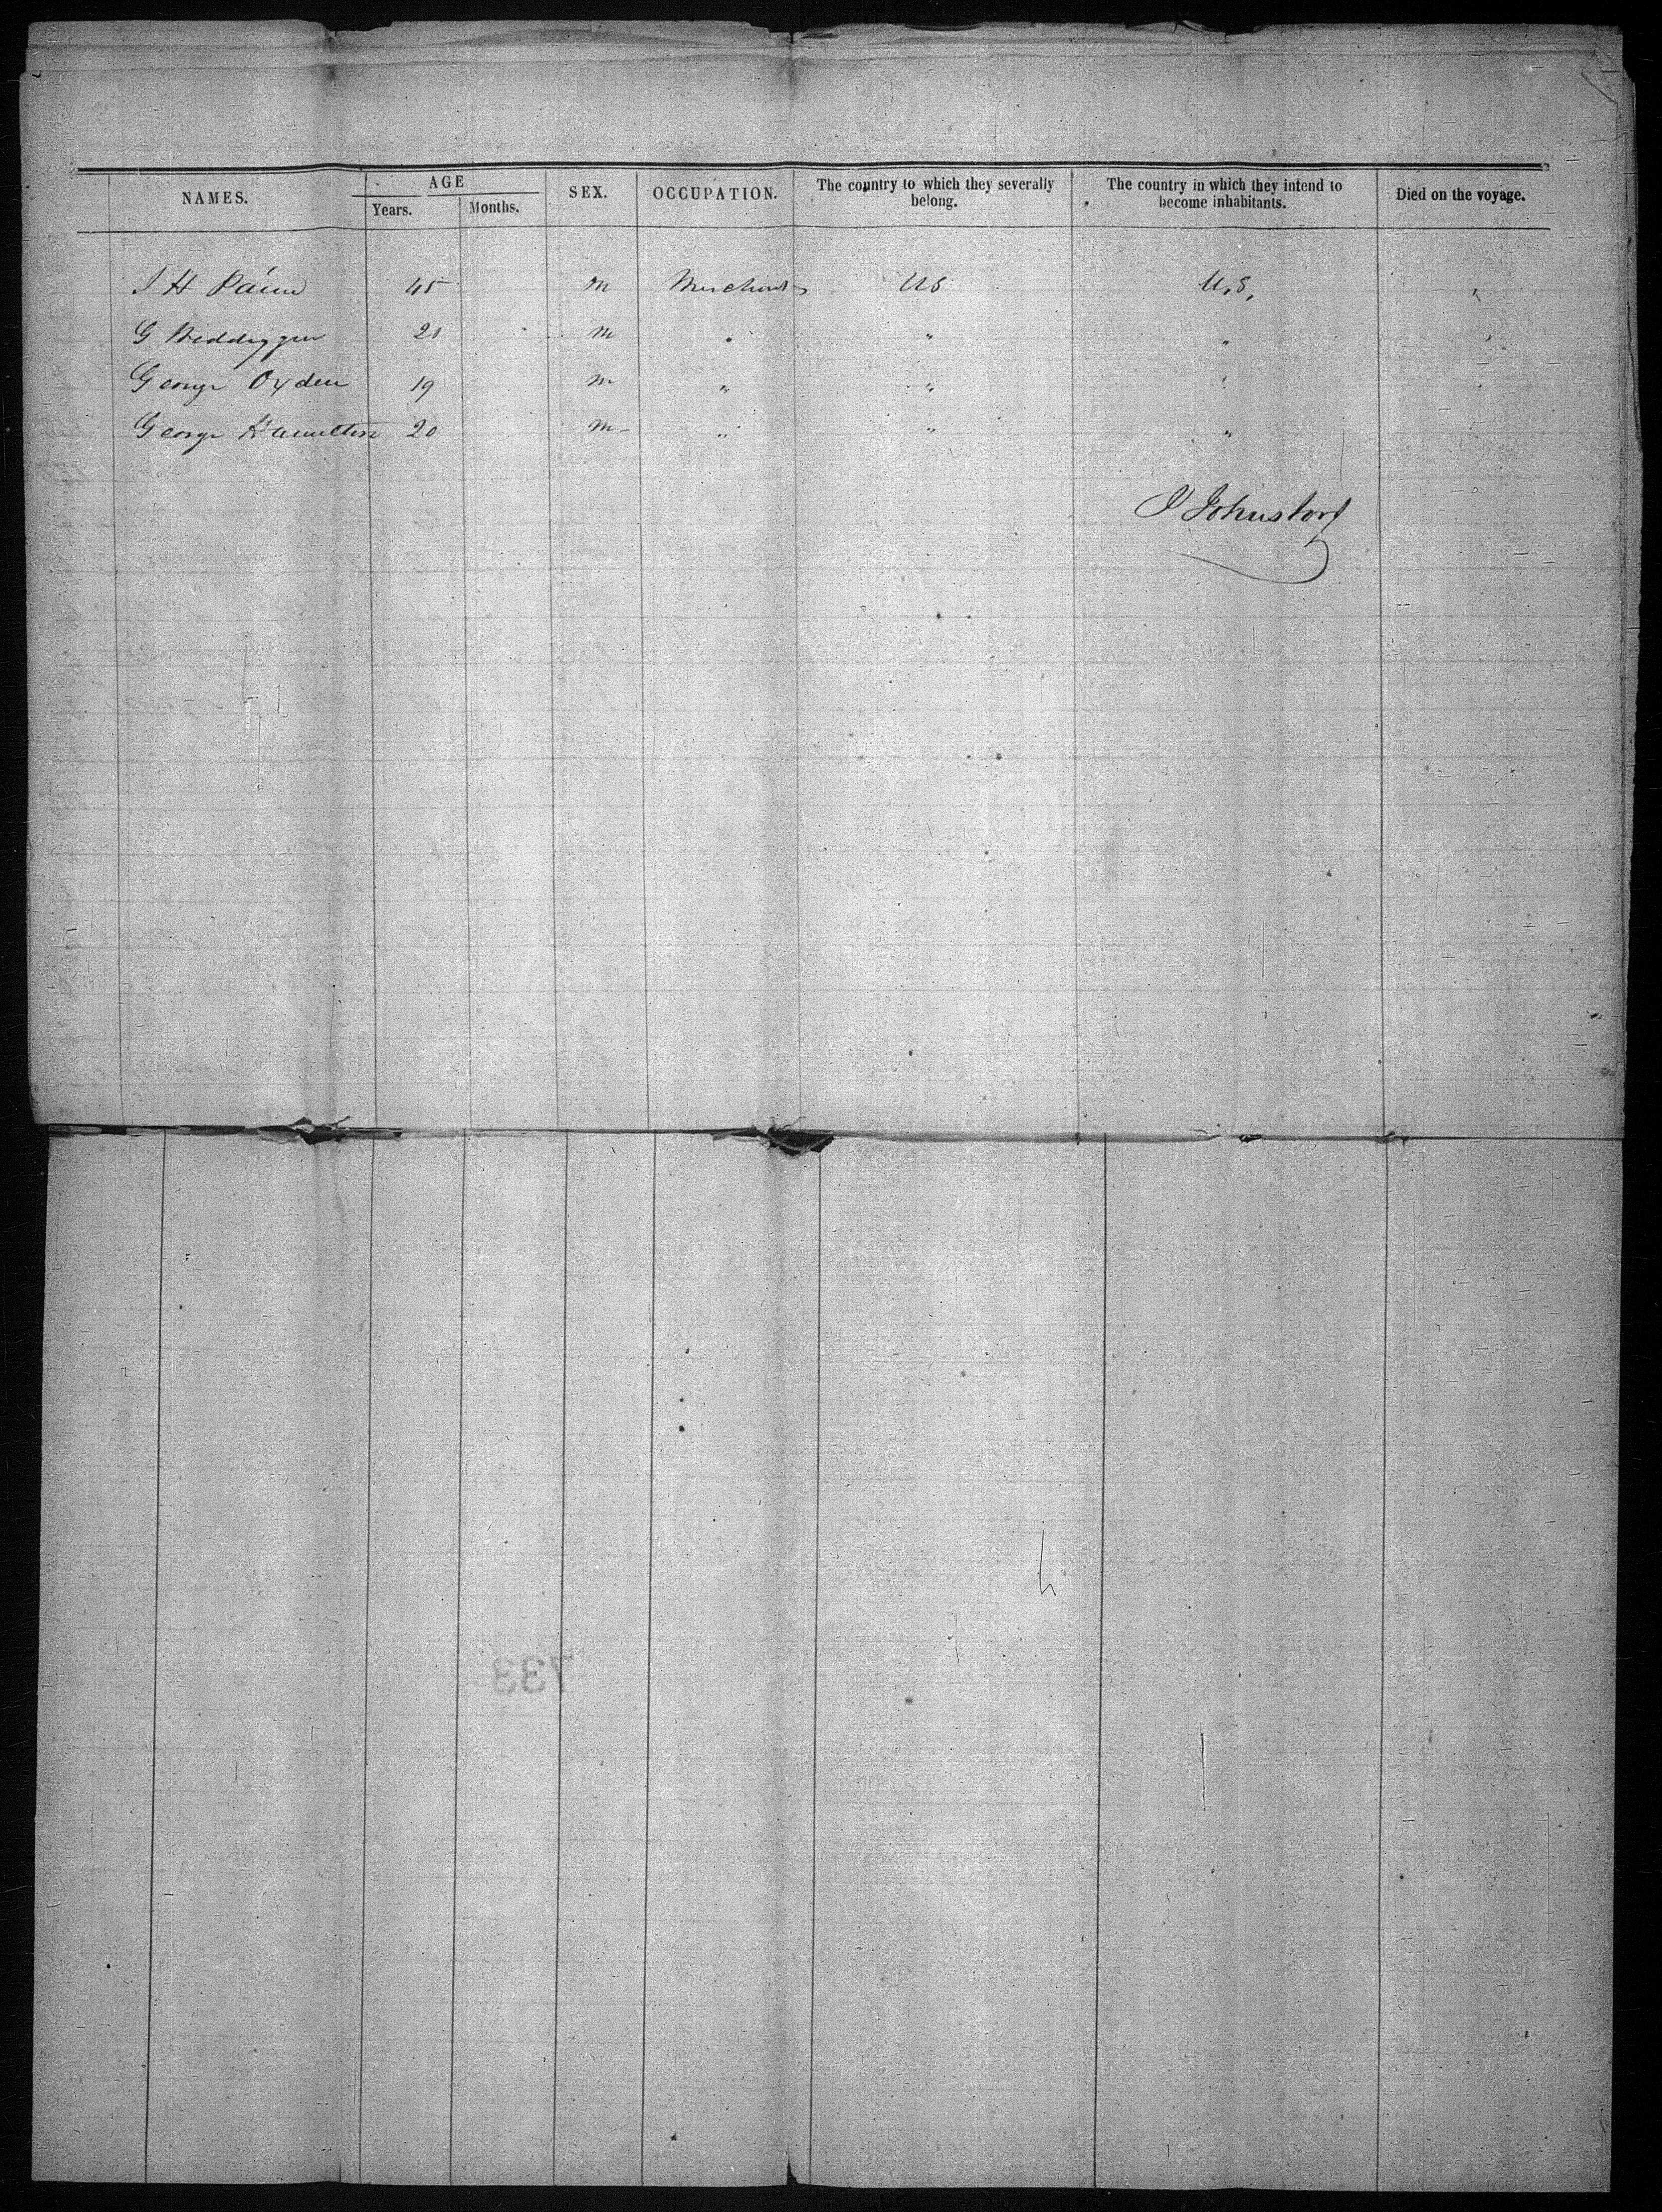 NAMES. AGE SEX. OCCUPATION. The country to which they severally belong. The country in which they intend to become inhabitants. Died on the voyage.
Years. Months.
J H 45 m Merchant US U.S.
G 20 m " " "
George Oyden 19 m " " "
George Hamilton 20 m " " "
J Johnston
733